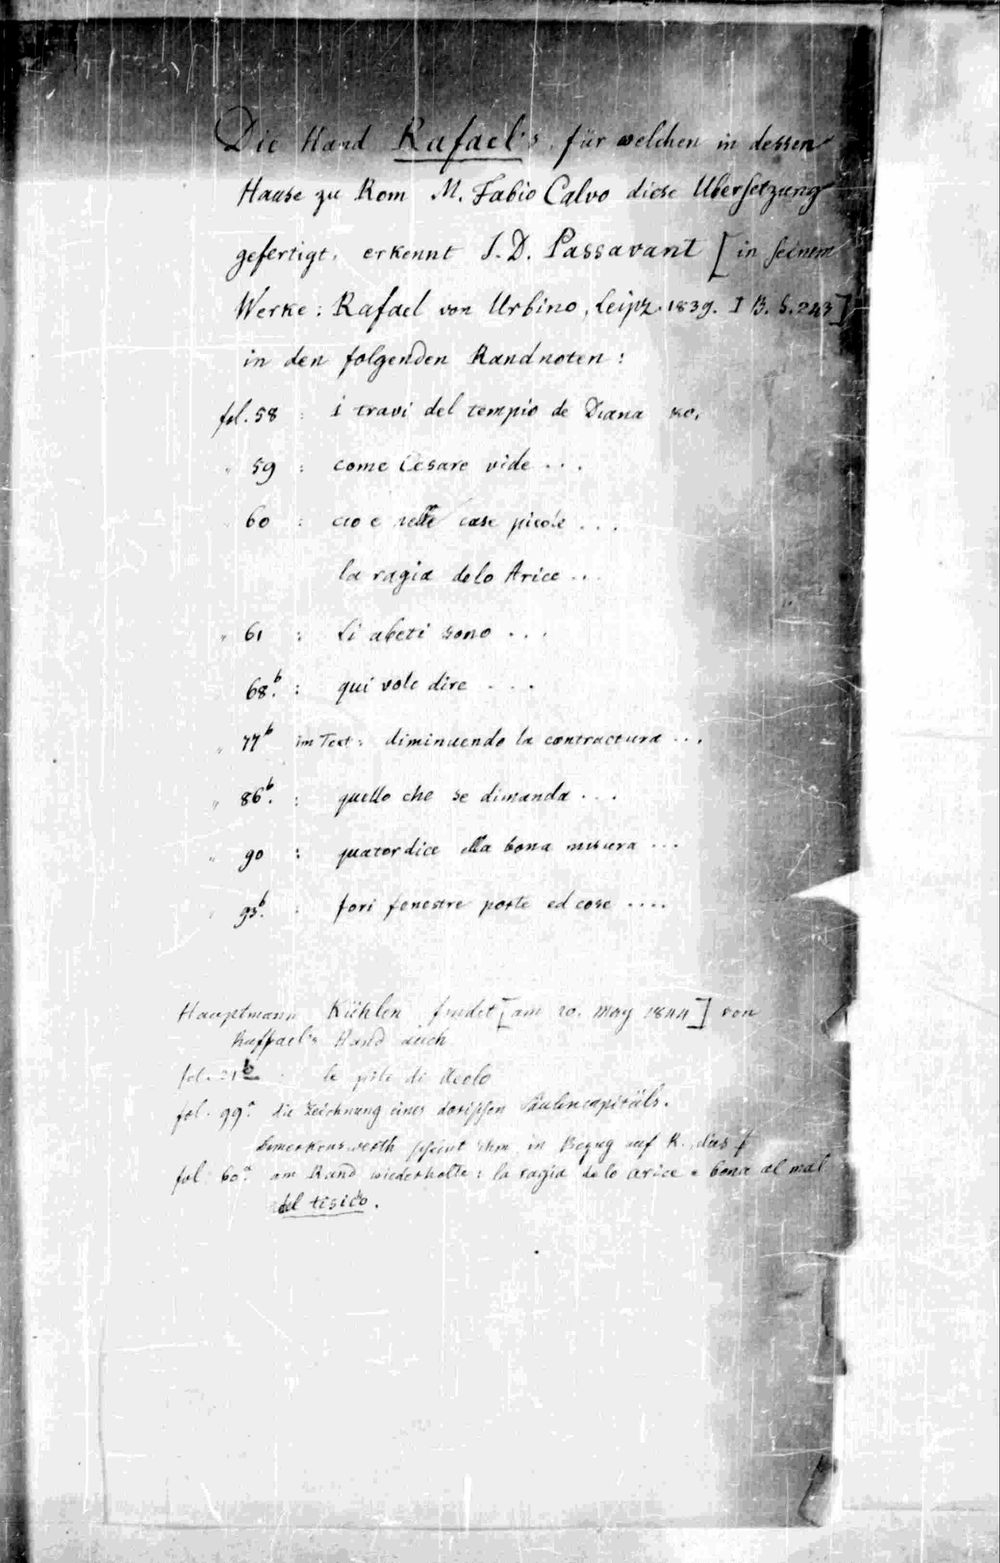 Die Hand Rafael's, für welchen in dessen
Hause zu Rom M. Fabio Calvo diese Ubersetzung
gefertigt, erkennt J. D. Passavant [in seinem
Werke: Rafael von Urbino, Leipz. 1839. I B. S. 243]
in den folgenden Randnoten:
fol. 58 : i travi del tempio de Diana
" 59 : come Cesare vide . . .
60 : cio e nelle case picole . . .
la ragia delo Arice . . .
" 61 : Li abeti sono . . .
68.b : qui vole dire . . .
" 77b im Text: diminuendo la contractura . . .
" 86.b : quello che se dimanda . . .
" 90 : quatordice ella bona misura . . .
" 93.b : fori fenestre porte ed cose . . . .
Hauptmann Kühlen findet [am 20. May 1844] von
Raffael's Hand auch
fol. 31b le pile di
fol. 99a die Zeichnung eines dorischen Säulencapitäls.
Bemerkenswerth scheint ihm in Bezug auf R., das
fol. 60a am Rand wiederholte: la ragia delo arice e bona al mal
del tisico.